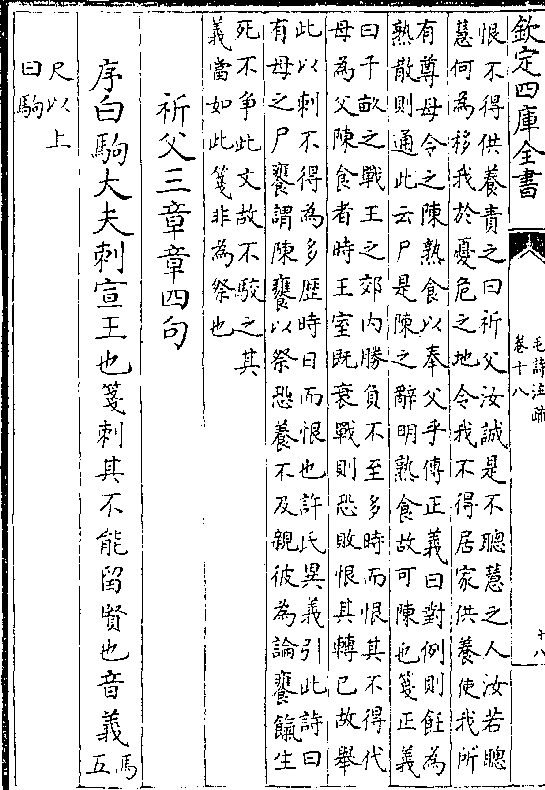 欽定四庫全書
毛詩注疏
卷十八
十八
恨不得供養責之曰祈父汝誠是不聰慧之人汝若聰
慧何為移我於憂危之地令我不得居家供養使我所
有尊母令之陳熟食以奉父乎傳正義曰對例則飪為
熟散則通此云尸是陳之辭明熟食故可陳也箋正義
曰千畝之戰王之郊内勝負不至多時而恨其不得代
母為父陳食者時王室既衰戰則恐敗恨其轉已故舉
此以刺不得為多歴時日而恨也許氏異義引此詩曰
有母之尸饔謂陳饔以祭恐養不及親彼為論饔餼生
死不爭此文故不駁之其
義當如此箋非為祭也
祈父三章章四句
序白駒大夫刺宣王也箋刺其不能留賢也音義馬
五
尺以上
曰駒